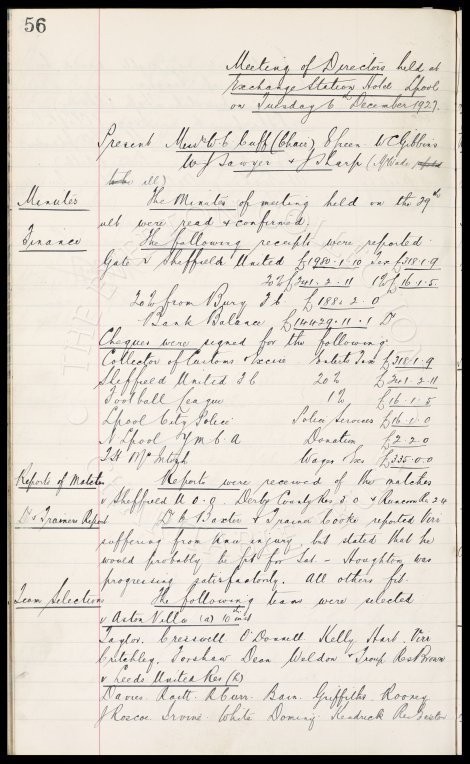 56
Meeting of Directors held at
Exchange Station Hotel Lpool
on Tuesday 6th December 1927.
Present Messrs W C Cuff (Chair) E Green W C Gibbins
W J Sawyer & J Sharp
all)
Minutes The Minutes of meeting held on the 29th
ult were read & confirmed
Finance The following receipts were reported
Gate v Sheffield United £1980.1.10 Tax £318.1.9
20% £341.2.11 1% £16.1.5
20% from Bury F C £188.2.0
Bank Balance £14429.11.1 Dr
Cheques were signed for the following
Collector of Customs & Excise Entertt Tax £318.1.9
Sheffield United F C 20% £341.2.11
Football League 1% £16.1.5
Lpool City Police Police Services £16.1.0
N Lpool Y M C A Donation £2.2.0
T H McIntosh Wages & Exs £335.0.0
Reports of Matches Reports were received of the matches
v Sheffield U 0.0. Derby County Res 3.0 & Runcorn Res 2.4
Dr & Trainers Report Dr Baxter & Trainer Cooke reported Virr
suffering from knee injury, but stated that he
would probably be fit for Sat. - Houghton was
progressing satisfactorily. All others fit.
Team Selections The following teams were selected
v Aston Villa (a) 10th inst
Taylor. Cresswell O'Donnell. Kelly Hart. Virr
Critchley. Forshaw Dean Weldon & Troup Res Brown
v Leeds United Res (h)
Davies. Raitt. Kerr. Bain. Griffiths. Rooney
J Roscoe. Irvine. White. Dominy. Kendrick Res